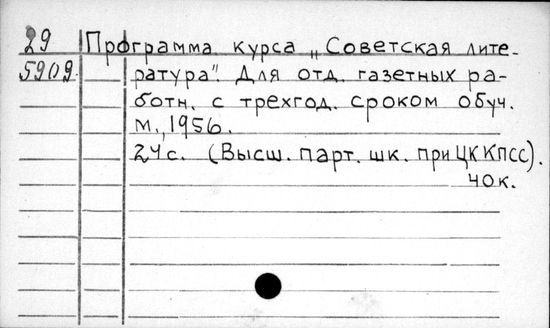 29 Программа курса „Советская лите-
5909 ратура". Для отд. газетных ра-
ботн. с трехгод. сроком обуч.
М., 1956.
24с. (Высш. парт. шк. при ЦК КПСС).
40к.